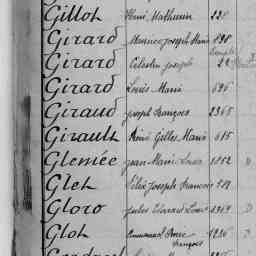 Gillot René Mathurin 228
Girard Maurice Joseph Marie 898
Girard Célestin Joseph
Girard Louis Marie 696
Giraud Joseph François 2365
Girault René Gilles Marie 615
Glemée Jean Marie Louis 1152 D
Glet Félix Joseph François
Gloro Jules Edouard Louis 1969 D
Glot Emmanuel Pierre 1236 D
François